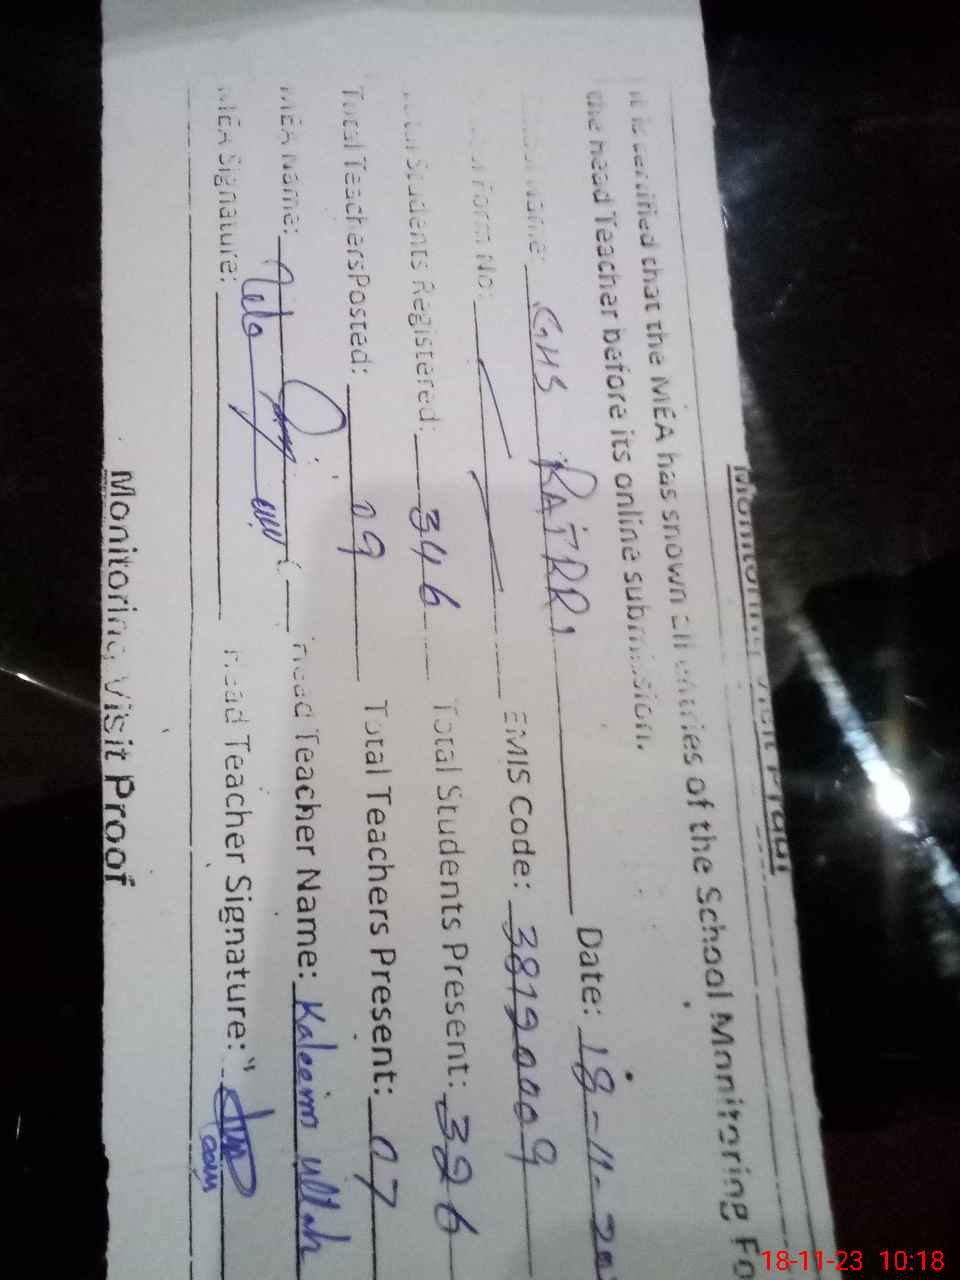 Monitoring Visit Proof
It is certified that the MEA has shown all entries of the School Monitoring Fo
the head Teacher before its online submission.
School Name: GHS RATRRI Date: 18-11-20
Form No: EMIS Code: 38190009
Total Students Registered: 346 Total Students Present: 326
Total Teachers Posted: 09 Total Teachers Present: 07
MEA Name: Head Teacher Name: Kaleem ullah
MEA Signature: Head Teacher Signature:
Monitoring Visit Proof
18-11-23 10:18